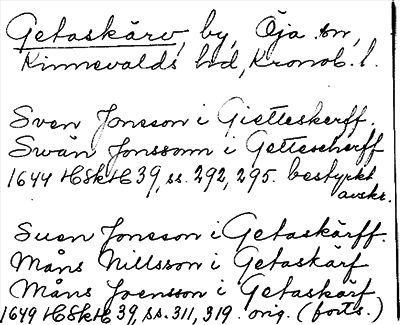 Getaskärv, by, Öja sn,
Kinnevalds hd, Kronob. l.
Sven Jonsson i Gietteskerff.
Swän Jonssonn i Gettescherff
1644 HSkH 39, ss. 292, 295. bestyrkt
avskr.
Suen Jonsson i Getaskärff.
Måns Nillsson i Getaskärf
Måns Joensson i Getaskärf
1649 HSkH 39, ss. 311, 319. orig. (forts.)